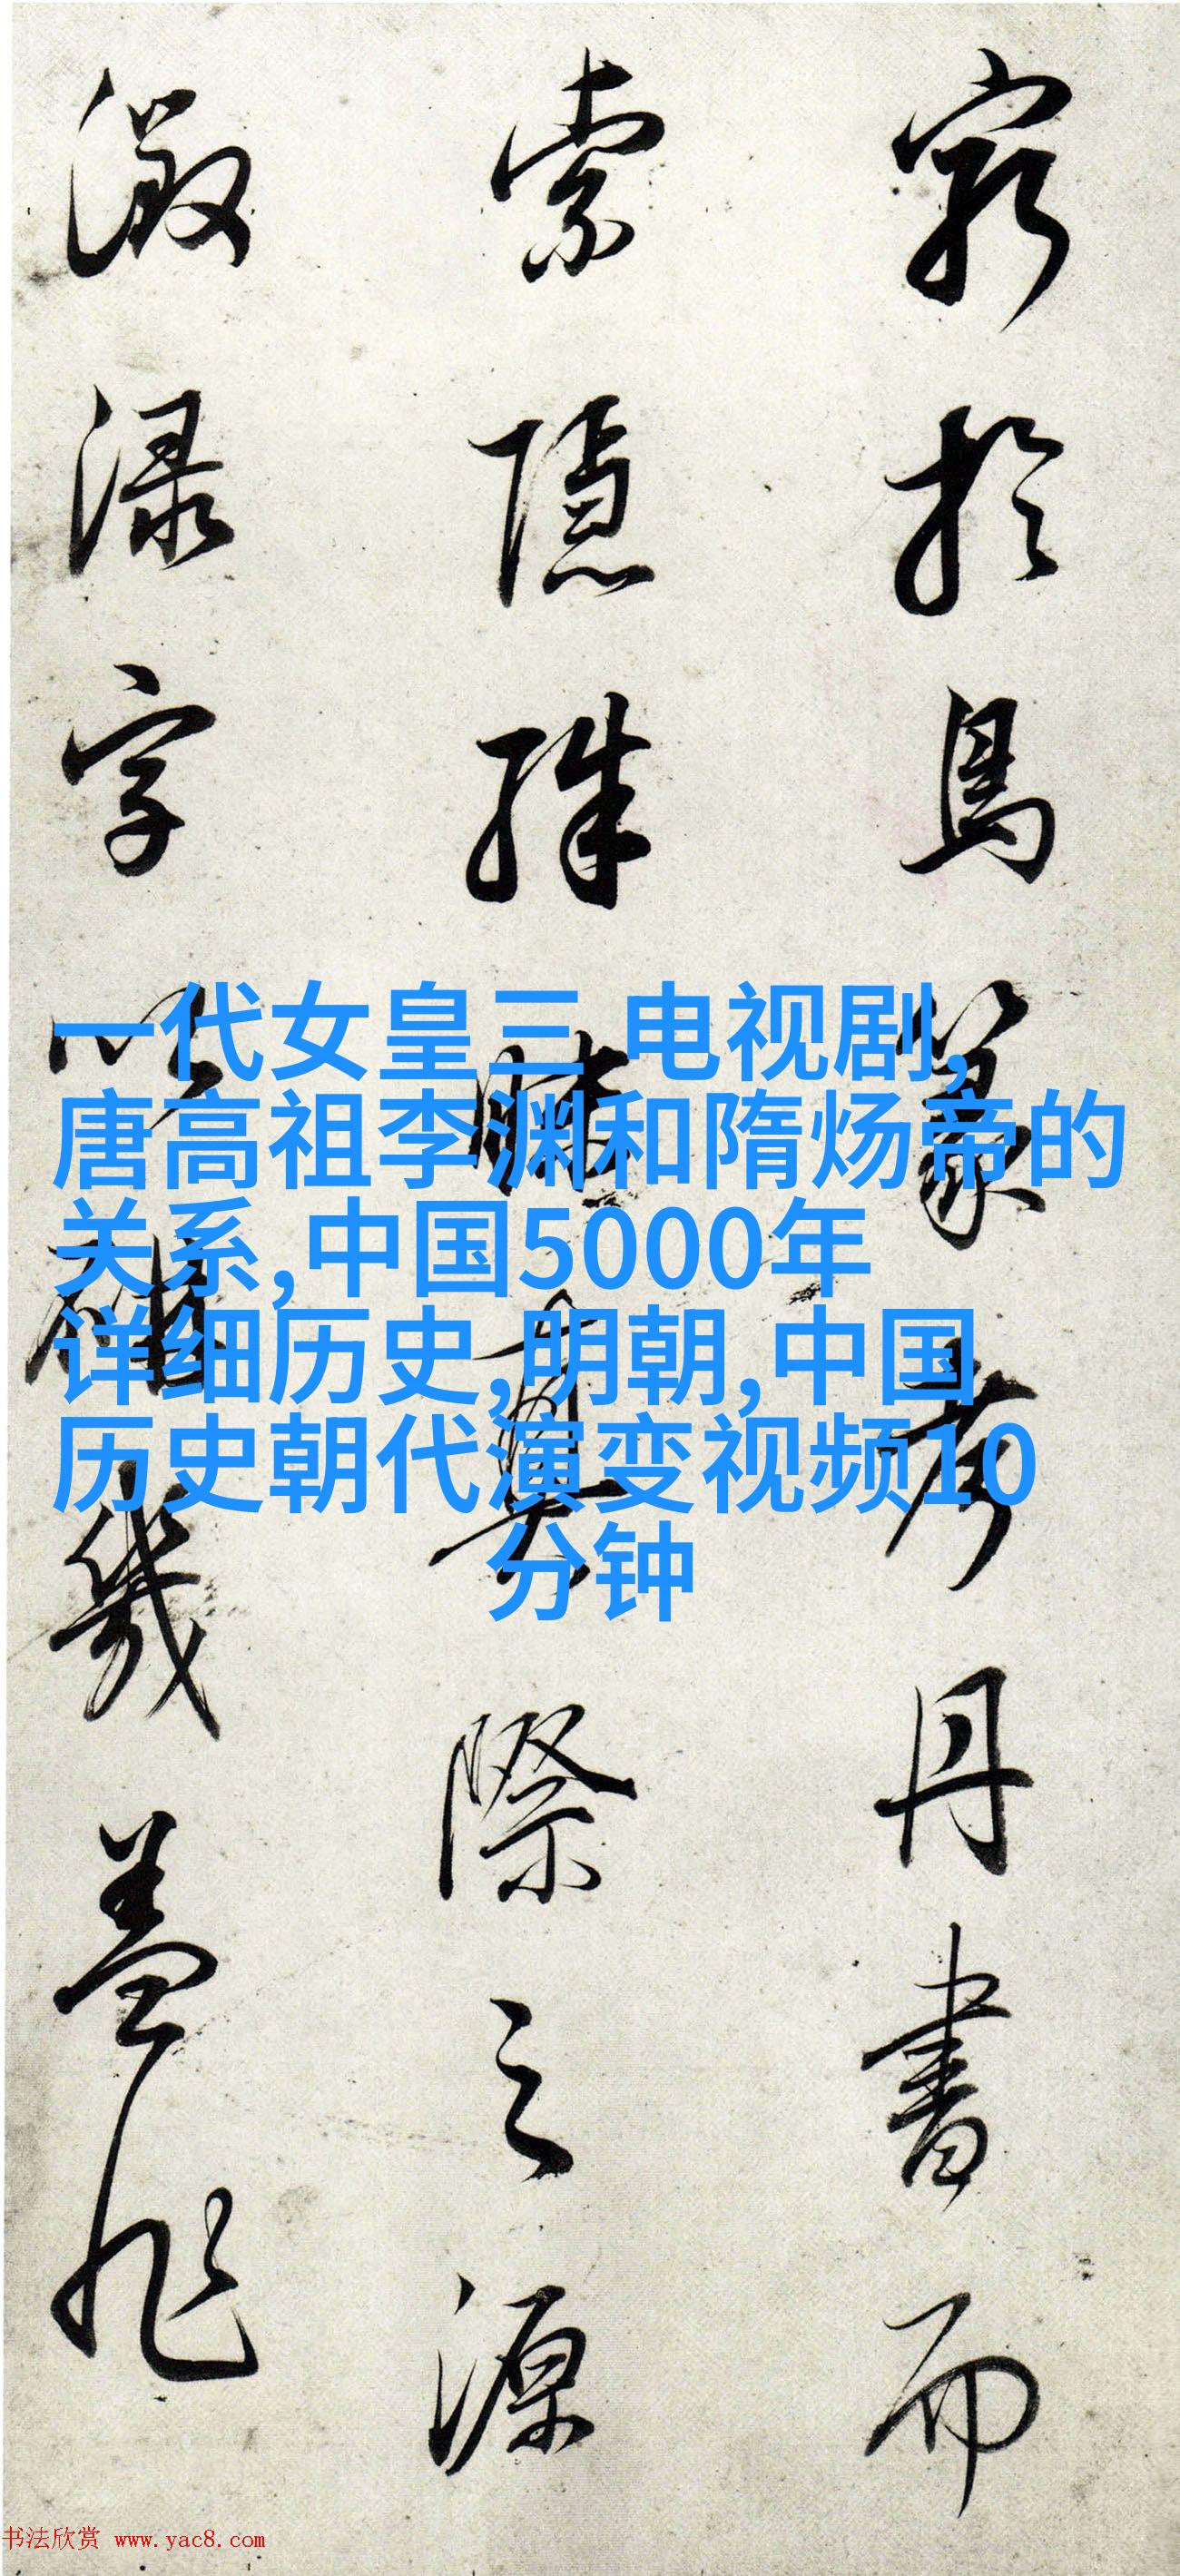 窮於鳥篆考丹書而
索隱殊昧真際之源
徵渌字以研幾蓋非
一代女皇三 电视剧,
唐高祖李渊和隋炀帝的
关系,中国5000年
详细历史,明朝,中国
历史朝代演变视频10
分钟
书法欣赏 www.yac8.com